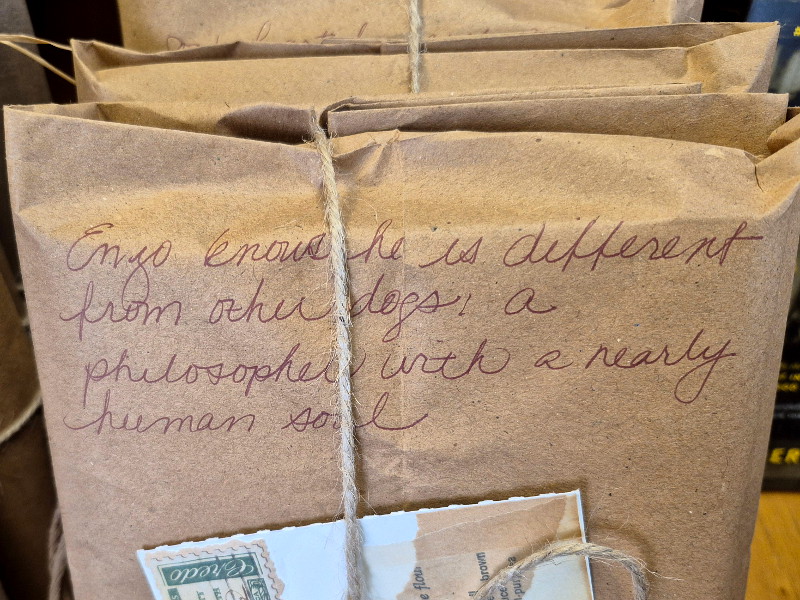 Enzo knows he is different
from other dogs: a
philosopher with a nearly
human soul
Credo
brown
ER